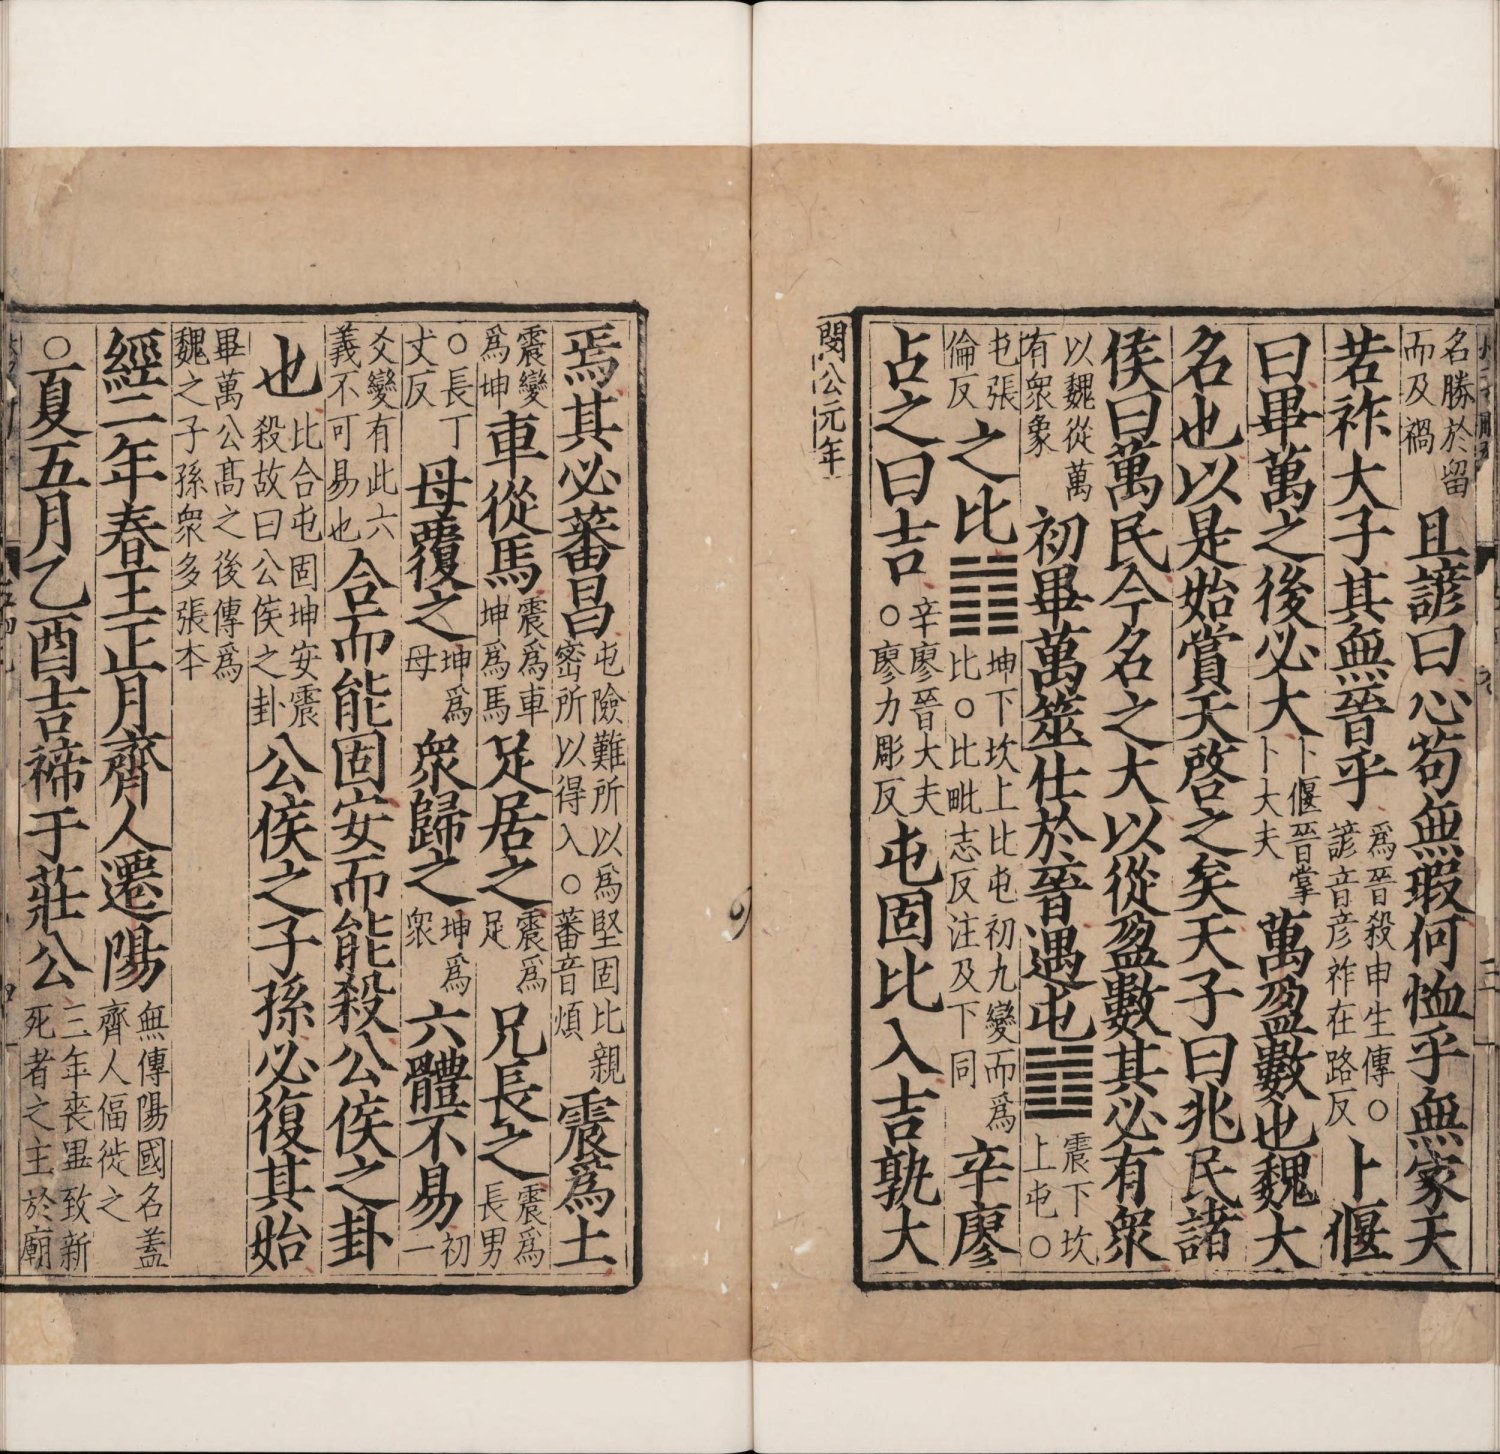 名勝於留而及禍且諺曰心苟無瑕何恤乎無家天
若祚大子其無晉乎為晉殺申生傳○諺音彥祚在路反卜偃
曰畢萬之後必大卜偃晉掌卜大夫萬盈數也魏大
名也以是始賞天啓之矣天子曰兆民諸
侯曰萬民今名之大以從盈數其必有衆
以魏從萬有衆象初畢萬筮仕於晉遇屯䷂震下坎上屯○
屯張倫反之比䷇坤下坎上比屯初九變而為比○比毗志反注及下同辛廖
占之曰吉辛廖晉大夫○廖力彫反屯固比入吉孰大
閔公元年
焉其必蕃昌屯險難所以為堅固比親密所以得入○蕃音煩震為土
震變為坤車從馬震為車坤為馬足居之震為足兄長之震為長男
○長丁丈反母覆之坤為母衆歸之坤為衆六體不易初一
爻變有此六義不可易也合而能固安而能殺公侯之卦
也比合屯固坤安震殺故曰公侯之卦公侯之子孫必復其始
畢萬公髙之後傳為魏之子孫衆多張本
經二年春王正月齊人遷陽無傳陽國名蓋齊人偪徙之
○夏五月乙酉吉禘于莊公三年喪畢致新死者之主於廟